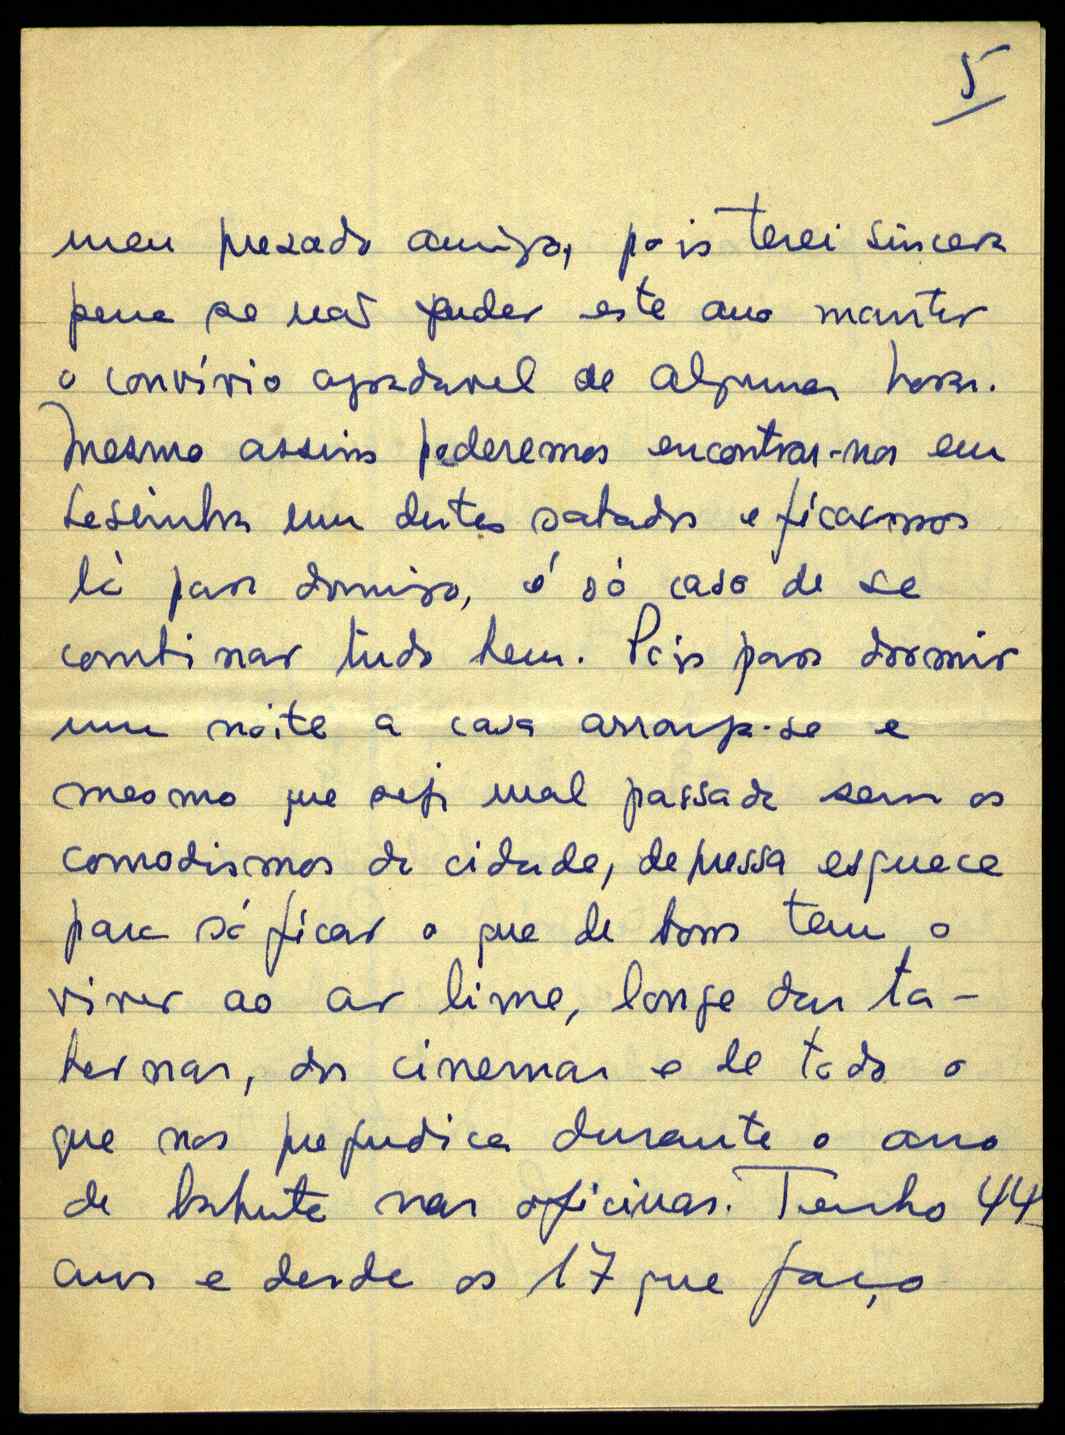 5
meu prezado amigo, pois terei sincera
pena se não puder este ano manter
o convívio agradavel de algumas horas.
Mesmo assim poderemos encontrar-nos em
Sesimbra um destes sabados e ficarmos
lá para domingo, é só caso de se
combinar tudo bem. Pois para dormir
uma noite a casa arranja-se e
mesmo que seja mal passada sem os
comodismos da cidade, depressa esquece
para só ficar o que de bom tem o
viver ao ar livre, longe das ta-
bernas, dos cinemas e de todo o
que nos prejudica durante o ano
de labuta nas oficinas. Tenho 44
anos e desde os 17 que faço